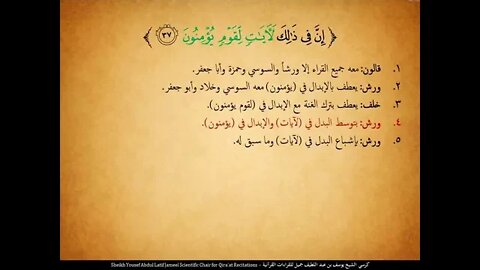 ﴿ إِنَّ فِي ذَٰلِكَ لَآيَاتٍ لِّقَوْمٍ يُؤْمِنُونَ ٣٧ ﴾
١. قالون: معه جميع القراء إلا ورشاً والسوسي وحمزة وأبا جعفر.
٢. ورش: يعطف بالإبدال في (يؤمنون) معه السوسي وخلاد وأبو جعفر.
٣. خلف: يعطف بترك الغنة مع الإبدال في (لقوم يؤمنون).
٤. ورش: بتوسط البدل في (لآيات) والإبدال في (يؤمنون).
٥. ورش: بإشباع البدل في (لآيات) وما سبق له.
كرسي الشيخ يوسف بن عبد اللطيف جميل للقراءات القرآنية - Sheikh Yousef Abdul Latif Jameel Scientific Chair for Qira'at Recitations